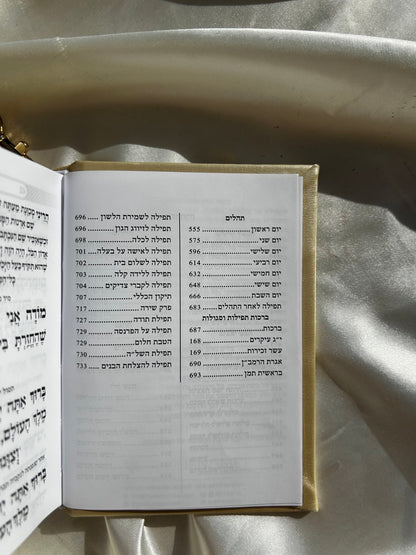 תהלים
יום ראשון 555
יום שני 575
יום שלישי 596
יום רביעי 614
יום חמישי 632
יום שישי 648
יום השבת 666
תפילה לאחר התהלים 683
ברכות תפילות וסגולות
ברכות 687
י״ג עיקרים 168
עשר זכירות 169
אגרת הרמב״ן 690
בראשית תמן 693
תפילה לשמירת הלשון 696
תפילה לזיווג הגון 696
תפילה לכלה 698
תפילה לאישה על בעלה 701
תפילה לשלום בית 702
תפילה ללידה קלה 703
תפילה לקברי צדיקים 704
תיקון הכללי 707
פרק שירה 717
תפילת תודה 727
תפילה על הפרנסה 729
הטבת חלום 729
תפילת השל״ה 730
תפילה להצלחת הבנים 733
מודה אני
ברוך אתה
מלך העולם
ברוך אתה